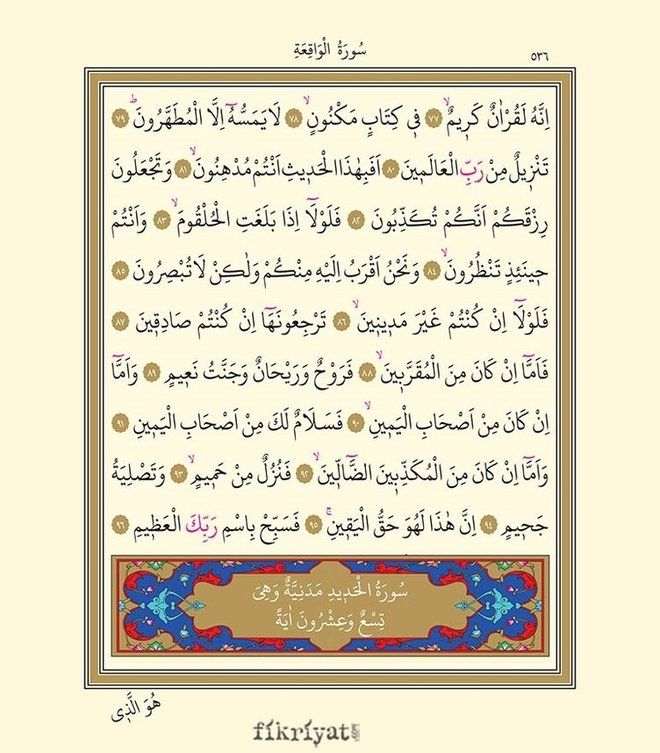 سُورَةُ الْوَاقِعَةِ
٥٣٦
اِنَّهُ لَقُرْاٰنٌ كَرِيمٌۙ ﴿٧٧﴾ فِي كِتَابٍ مَكْنُونٍۙ ﴿٧٨﴾ لَا يَمَسُّهُٓ اِلَّا الْمُطَهَّرُونَۜ ﴿٧٩﴾
تَنْزِيلٌ مِنْ رَبِّ الْعَالَمِينَ ﴿٨٠﴾ اَفَبِهٰذَا الْحَدِيثِ اَنْتُمْ مُدْهِنُونَۙ ﴿٨١﴾ وَتَجْعَلُونَ
رِزْقَكُمْ اَنَّكُمْ تُكَذِّبُونَ ﴿٨٢﴾ فَلَوْلَٓا اِذَا بَلَغَتِ الْحُلْقُومَۙ ﴿٨٣﴾ وَاَنْتُمْ
حِينَئِذٍ تَنْظُرُونَۙ ﴿٨٤﴾ وَنَحْنُ اَقْرَبُ اِلَيْهِ مِنْكُمْ وَلٰكِنْ لَا تُبْصِرُونَ ﴿٨٥﴾
فَلَوْلَٓا اِنْ كُنْتُمْ غَيْرَ مَدِينِينَۙ ﴿٨٦﴾ تَرْجِعُونَهَٓا اِنْ كُنْتُمْ صَادِقِينَ ﴿٨٧﴾
فَاَمَّٓا اِنْ كَانَ مِنَ الْمُقَرَّبِينَۙ ﴿٨٨﴾ فَرَوْحٌ وَرَيْحَانٌ وَجَنَّتُ نَعِيمٍ ﴿٨٩﴾ وَاَمَّٓا
اِنْ كَانَ مِنْ اَصْحَابِ الْيَمِينِۙ ﴿٩٠﴾ فَسَلَامٌ لَكَ مِنْ اَصْحَابِ الْيَمِينِ ﴿٩١﴾
وَاَمَّٓا اِنْ كَانَ مِنَ الْمُكَذِّبِينَ الضَّٓالِّينَۙ ﴿٩٢﴾ فَنُزُلٌ مِنْ حَمِيمٍۙ ﴿٩٣﴾ وَتَصْلِيَةُ
جَحِيمٍ ﴿٩٤﴾ اِنَّ هٰذَا لَهُوَ حَقُّ الْيَقِينِۚ ﴿٩٥﴾ فَسَبِّحْ بِاسْمِ رَبِّكَ الْعَظِيمِ ﴿٩٦﴾
سُورَةُ الْحَدِيدِ مَدَنِيَّةٌ وَهِيَ
تِسْعٌ وَعِشْرُونَ اٰيَةً
هُوَ الَّذِي
fikriyat